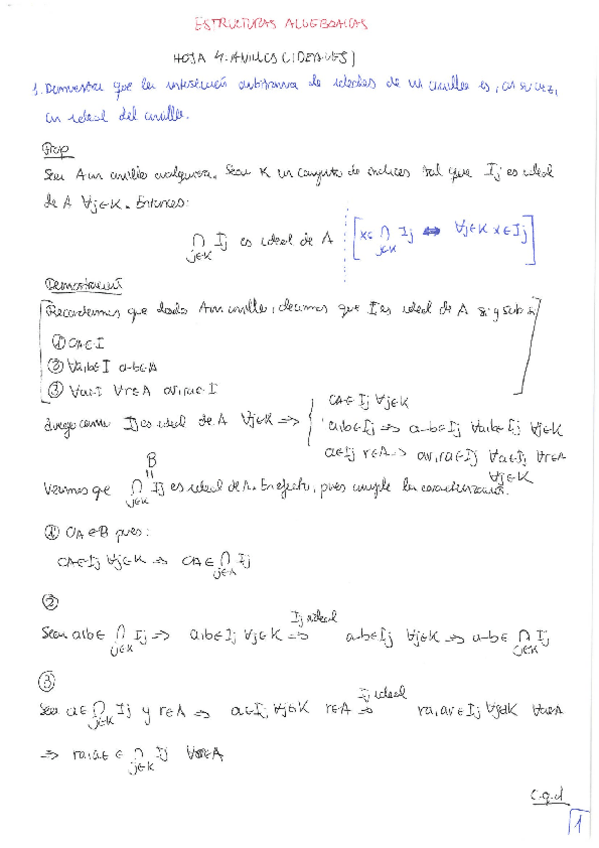 ESTRUCTURAS ALGEBRAICAS
HOJA 4: ANILLOS (IDEALES)
1. Demostrar que la intersección arbitraria de ideales de un anillo es, a su vez,
un ideal del anillo.
Prop
Sea A un anillo cualquiera. Sean K un conjunto de índices tal que Ij es ideal
de A ∀j∈K. Entonces:
∩ Ij es ideal de A [x∈ ∩ Ij ⇔ ∀j∈K x∈Ij]
j∈K j∈K
Demostración
[Recordemos que dado A un anillo, decimos que I es ideal de A si y solo si
① 0A∈I
② ∀a,b∈I a-b∈A
③ ∀a∈I ∀r∈A ar,ra∈I]
Luego como Ij es ideal de A ∀j∈K ⇒ { 0A∈Ij ∀j∈K
a,b∈Ij ⇒ a-b∈Ij ∀a,b∈Ij ∀j∈K
a∈Ij r∈A ⇒ ar,ra∈Ij ∀a∈Ij ∀r∈A
∀j∈K
B
=
Veamos que ∩ Ij es ideal de A. En efecto, pues cumple la caracterización.
j∈K
① 0A∈B pues:
0A∈Ij ∀j∈K ⇒ 0A∈ ∩ Ij
j∈A
②
Ij ideal
Sean a,b∈ ∩ Ij ⇒ a,b∈Ij ∀j∈K ⇒ a-b∈Ij ∀j∈K ⇒ a-b∈ ∩ Ij
j∈K j∈K
③
Ij ideal
Sea a∈ ∩ Ij y r∈A ⇒ a∈Ij ∀j∈K r∈A ⇒ ra,ar∈Ij ∀j∈K ∀r∈A
j∈K
⇒ ra,ar∈ ∩ Ij ∀r∈A
j∈K
c.q.d
1